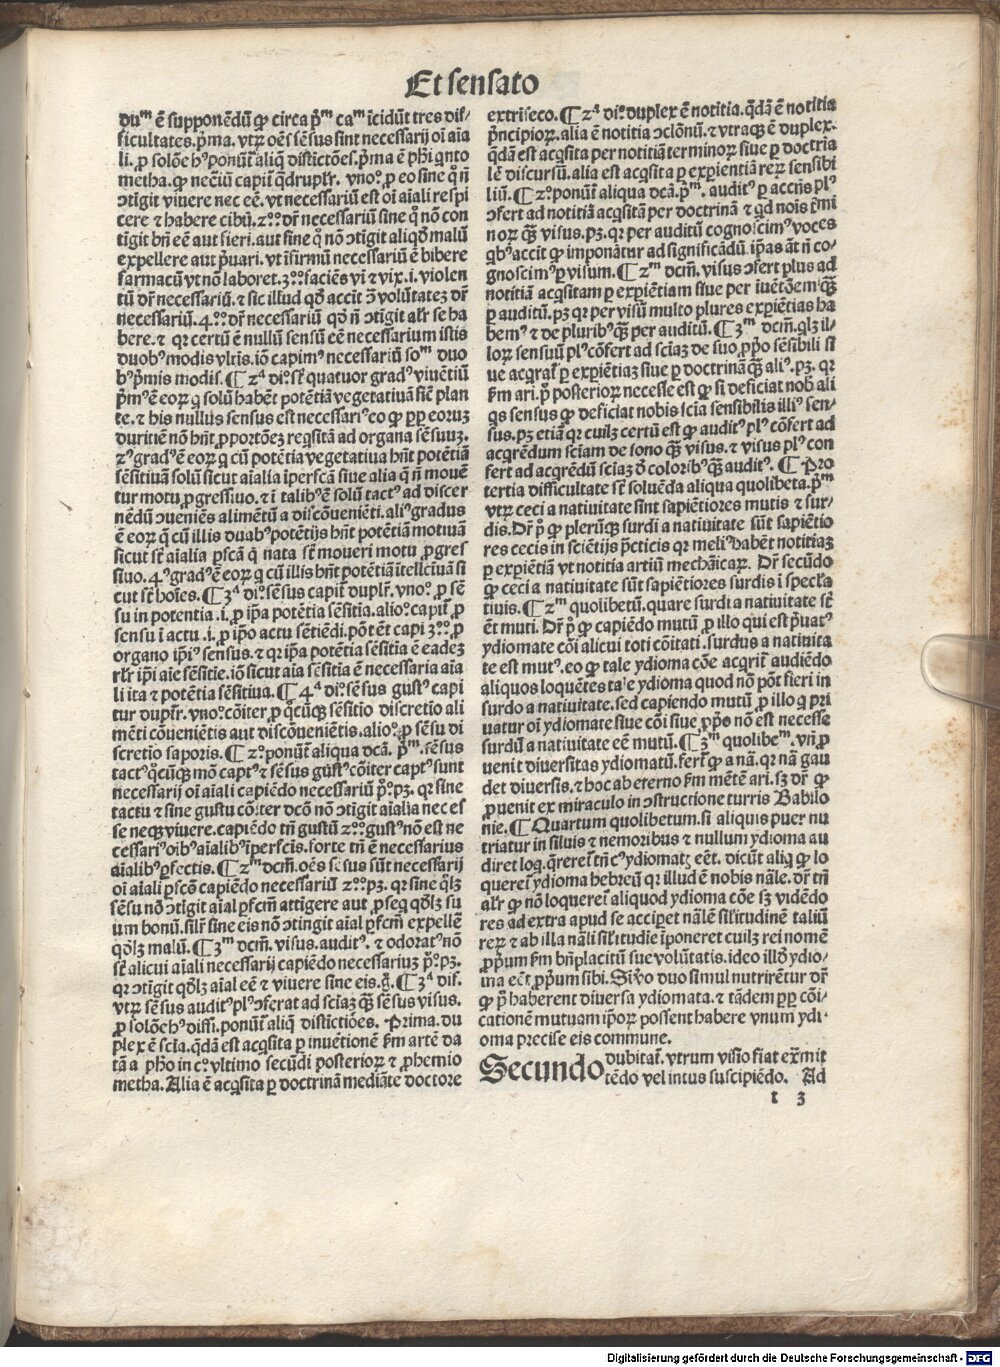 Et sensato
duᵐ ē supponēdū ꝙ circa pᵐ caᵐ īcidūt tres dif⸗
ficultates. pͥma. vtꝝ oēs sēsus sint necessarij oī aīa
li. ꝓ solōe hꝰ ponūt aliq̄ distīctōes. pͥma ē pħi qnto
metha. ꝙ necīiū capit̄ q̄druplr̄. vnoᵒ ꝓ eo sine q̊ nō
ↄtīgit viuere nec eē. vt necessariū est oī aīali respi
cere ⁊ habere cibū. 2ᵒᵒ dr̄ necessariū sine q̊ nō con
tīgit bn̄ eē aut fieri. aut sine q̊ nō ↄtīgit aliqđ malū
expellere aut pͥuari. vt īfirmū necessariū ē bibere
farmacū vt nō laboret. 3ᵒᵒ faciēs vi ⁊ vix .i. violen
tū dr̄ necessariū. ⁊ sic illud qđ accīt ↄ̄ volūtatez dr̄
necessariū. 4ᵒᵒ dr̄ necessariū qđ nō ↄtīgit alr̄ se ha
bere. ⁊ qꝛ certū ē nullū sensū eē necessarium istis
duobꝰ modis vltīs. iō capimꝰ necessariū soᵐ duo
bꝰ pͥmis modis. ¶ 2ᵃ diᵒ sūt quatuor gradꝰ viuētiū
pͥmꝰ ē eoꝝ q̄ solū habēt potētiā vegetatiuā sic̄ plan
te. ⁊ his nullus sensus est necessariꝰ eo ꝙ ꝓpt̄ eorum
duritiē nō hn̄t ꝓportōez reqͥsitā ad organa sēsuuz.
2ꝰ gradꝰ ē eoꝝ q̄ cū potētia vegetatiua hn̄t potētiā
sēsitiuā solū sicut aīalia īperfcā siue alia q̄ nō mouē
tur motu ꝓgressiuo. ⁊ ī talibꝰ ē solū tactꝰ ad discer
nēdū ↄueniēs alimētū a discōueniēti. aliꝰ gradus
ē eoꝝ q̄ cū illis duabꝰ potētijs hn̄t potētiā motiuā
sicut sūt aīalia ꝑfcā q̄ nata sūt moueri motu ꝓgres
siuo. 4ꝰ gradꝰ ē eoꝝ q̄ cū illis hn̄t potētiā ītellcīuā si
cut sūt hoīes. ¶ 3ᵃ diᵒ sēsus capit̄ duplr̄. vnoᵒ ꝓ sē
su in potentia .i. ꝓ ipā potētia sēsitia. alioᵒ capit̄ ꝓ
sensu ī actu .i. ꝓ ipō actu sētiēdi. pōt ēt capi 3ᵒᵒ ꝓ
organo ipīꝰ sensus. ⁊ qꝛ ipā potētia sēsitia ē eadez
rlr̄ ipī aīe sēsitie. iō sicut aīa sēsitia ē necessaria aīa
li ita ⁊ potētia sēsitiua. ¶ 4ᵃ diᵒ sēsus gustꝰ capi
tur duplr̄. vnoᵒ cōiter ꝓ q̄cūqꝫ sēsitio discretio ali
mēti cōueniētis aut discōueniētis. alioᵒ ꝓ sēsu di
scretio saporis. ¶ 2ᵒ ponūt̄ aliqua dcā. pͥmᵐ. sēsus
tactꝰ q̄cūqꝫ mō captꝰ ⁊ sēsus gustꝰ cōiter captꝰ sunt
necessarij oī aīali capiēdo necessariū pͥᵒ. pꝫ. qꝛ sine
tactu ⁊ sine gustu cōiter dcō nō ↄtīgit aīalia nec es
se neqꝫ viuere. capiēdo tn̄ gustū 2ᵒᵒ gustꝰ nō est ne
cessariꝰ oībꝰ aīalibꝰ īperfcīs. forte tn̄ ē necessarius
aīalibꝰ ꝑfectis. ¶ 2ᵐ dcm̄. oēs sēsus sūt necessarij
oī aīali ꝑfcō capiēdo necessariū 2ᵒᵒ pꝫ. qꝛ sine qͦlꝫ
sēsu nō ↄtīgit aīal ꝑfcm̄ attīgere aut ꝓseq qđlꝫ su
um bonū. silr̄ sine eis nō ↄtingit aīal ꝑfcm̄ expellē
qđlꝫ malū. ¶ 3ᵐ dcm̄. visus. auditꝰ. ⁊ odoratꝰ nō
sūt alicui aīali necessarij capiēdo necessariuz pͥᵒ. pꝫ.
qꝛ ↄtīgit qđlꝫ aīal eē ⁊ viuere sine eis. g̊. ¶ 3ᵃ dif.
vtꝝ sēsus auditꝰ plꝰ ↄferat ad sciaꝫ q̄ꝫ sēsus visus.
ꝓ solōe hꝰ diffi. ponūt̄ aliq̄ distictiōes. Prima. du
plex ē scīa. q̄dā est acqͥsita ꝑ inuētionē ẜm artē da
tā a pħo in cᵒ vltimo secūdi posterioꝝ ⁊ ꝓhemio
metha. Alia ē acqͥsita ꝑ doctrinā mediāte doctore
extrīseco. ¶ 2ᵃ diᵒ duplex ē notitia. q̄dā ē notitia
pͥncipioꝝ. alia ē notitia ↄclōnū. ⁊ vtraqꝫ ē duplex.
q̄dā est acqͥsita per notitiā terminoꝝ siue ꝑ doctria
lē discursū. alia est acqͥsita ꝑ experiētiā reꝝ sensibi
liū. ¶ 2ᵒ ponūt̄ aliqua dcā. pͥᵐ. auditꝰ ꝑ accn̄s plꝰ
ↄfert ad notitiā acqͥsitā per doctrinā ⁊ qd nois tͥmi
noꝝ q̄ꝫ visus. pꝫ. qꝛ per auditū cognoscimꝰ voces
qͥbꝰ accīt ꝙ imponātur ad significādū. ipās āt nō co⸗
gnoscimꝰ ꝑ visum. ¶ 2ᵐ dcm̄. visus ↄfert plus ad
notitiā acqͥsitam ꝑ expiētiam siue per iuētōem q̄ꝫ
ꝑ auditū. pꝫ qꝛ per visū multo plures expiētias ha
bemꝰ ⁊ de pluribꝰ q̄ꝫ per auditū. ¶ 3ᵐ dcm̄. qͥlꝫ il⸗
loꝝ sensuū plꝰ cōfert ad sciaz de suo ꝓpͥo sēsibili si
ue acqͥrat̄ ꝑ expiētiaz siue ꝑ doctrinā q̄ꝫ aliꝰ. pꝫ. qꝛ
ẜm ari. pͥ posterioꝝ necesse est ꝙ si deficiat nob̄ ali
qͥs sensus ꝙ deficiat nobis scia sensibilis illiꝰ sen⸗
sus. pꝫ etiā qꝛ cuilꝫ certū est ꝙ auditꝰ plꝰ cōfert ad
acqͥrēdum sciam de sono q̄ꝫ visus. ⁊ visus plꝰ con
fert ad acqͥrēdū sciaz đ coloribꝰ q̄ꝫ auditꝰ. ¶ Pro
tertia difficultate sūt soluēda aliqua quolibeta. pͥᵐ
vtꝝ ceci a natiuitate sint sapiētiores mutis ⁊ sur⸗
dis. Dr̄ pͥᵒ ꝙ plerūqꝫ surdi a natiuitate sūt sapiētio
res cecis in sciētijs pͣcticis qꝛ meliꝰ habēt notitiaꝫ
ꝑ expiētiā vt notitia artiū mechāicaꝝ. Dr̄ secūdo
ꝙ ceci a natiuitate sūt sapiētiores surdis ī specľa
tiuis. ¶ 2ᵐ quolibetū. quare surdi a natiuitate sūt
ēt muti. Dr̄ pͥᵒ ꝙ capiēdo mutū ꝓ illo qui est pͥuatꝰ
ydiomate cōi alicui toti cōitati. surdus a natiuita
te est mutꝰ. eo ꝙ tale ydioma cōe acqͥrit̄ audiēdo
aliquos loquētes tale ydioma quod nō pōt fieri in
surdo a natiuitate. sed capiendo mutū ꝓ illo q̄ pri
uatur oī ydiomate siue cōi siue ꝓpͥo nō est necesse
surdū a natiuitate eē mutū. ¶ 3ᵐ quolibeᵐ. vn̄ ꝓ
uenit diuersitas ydiomatū. fert̄ ꝙ a nā. qꝛ nā gau
det diuersis. ⁊ hoc ab eterno ẜm mētē ari. sꝫ dr̄ ꝙ
ꝓuenit ex miraculo in ↄstructione turris Babilo
nie. ¶ Quartum quolibetum. si aliquis puer nu
triatur in siluis ⁊ nemoribus ⁊ nullum ydioma au
diret loq. q̄reret̄ tn̄ cꝰ ydiomatꝫ eēt. dicūt aliq̄ ꝙ lo
queret̄ ydioma hebreū qꝛ illud ē nobis nāle. dr̄ tn̄
alr̄ ꝙ nō loqueret̄ aliquod ydioma cōe sꝫ vidēdo
res ad extra apud se acciꝑet nālē sil̄itudinē taliū
reꝝ ⁊ ab illa nāli sil̄itudīe īponeret cuilꝫ rei nomē
ꝓpͥum ẜm bn̄placitū sue volūtatis. ideo illđ ydio⸗
ma eēt ꝓpͥum sibi. Si v̊o duo simul nutrirētur dr̄
ꝙ pͥᵒ haberent diuersa ydiomata. ⁊ tādem ꝓpt̄ cōi⸗
cationē mutuam ip̄oꝝ possent habere vnum ydi⸗
oma precise eis commune.
Secundo dubitat̄. vtrum visio fiat ext̄mit
tēdo vel intus suscipiēdo. Ad
t 3
Digitalisierung gefördert durch die Deutsche Forschungsgemeinschaft - DFG